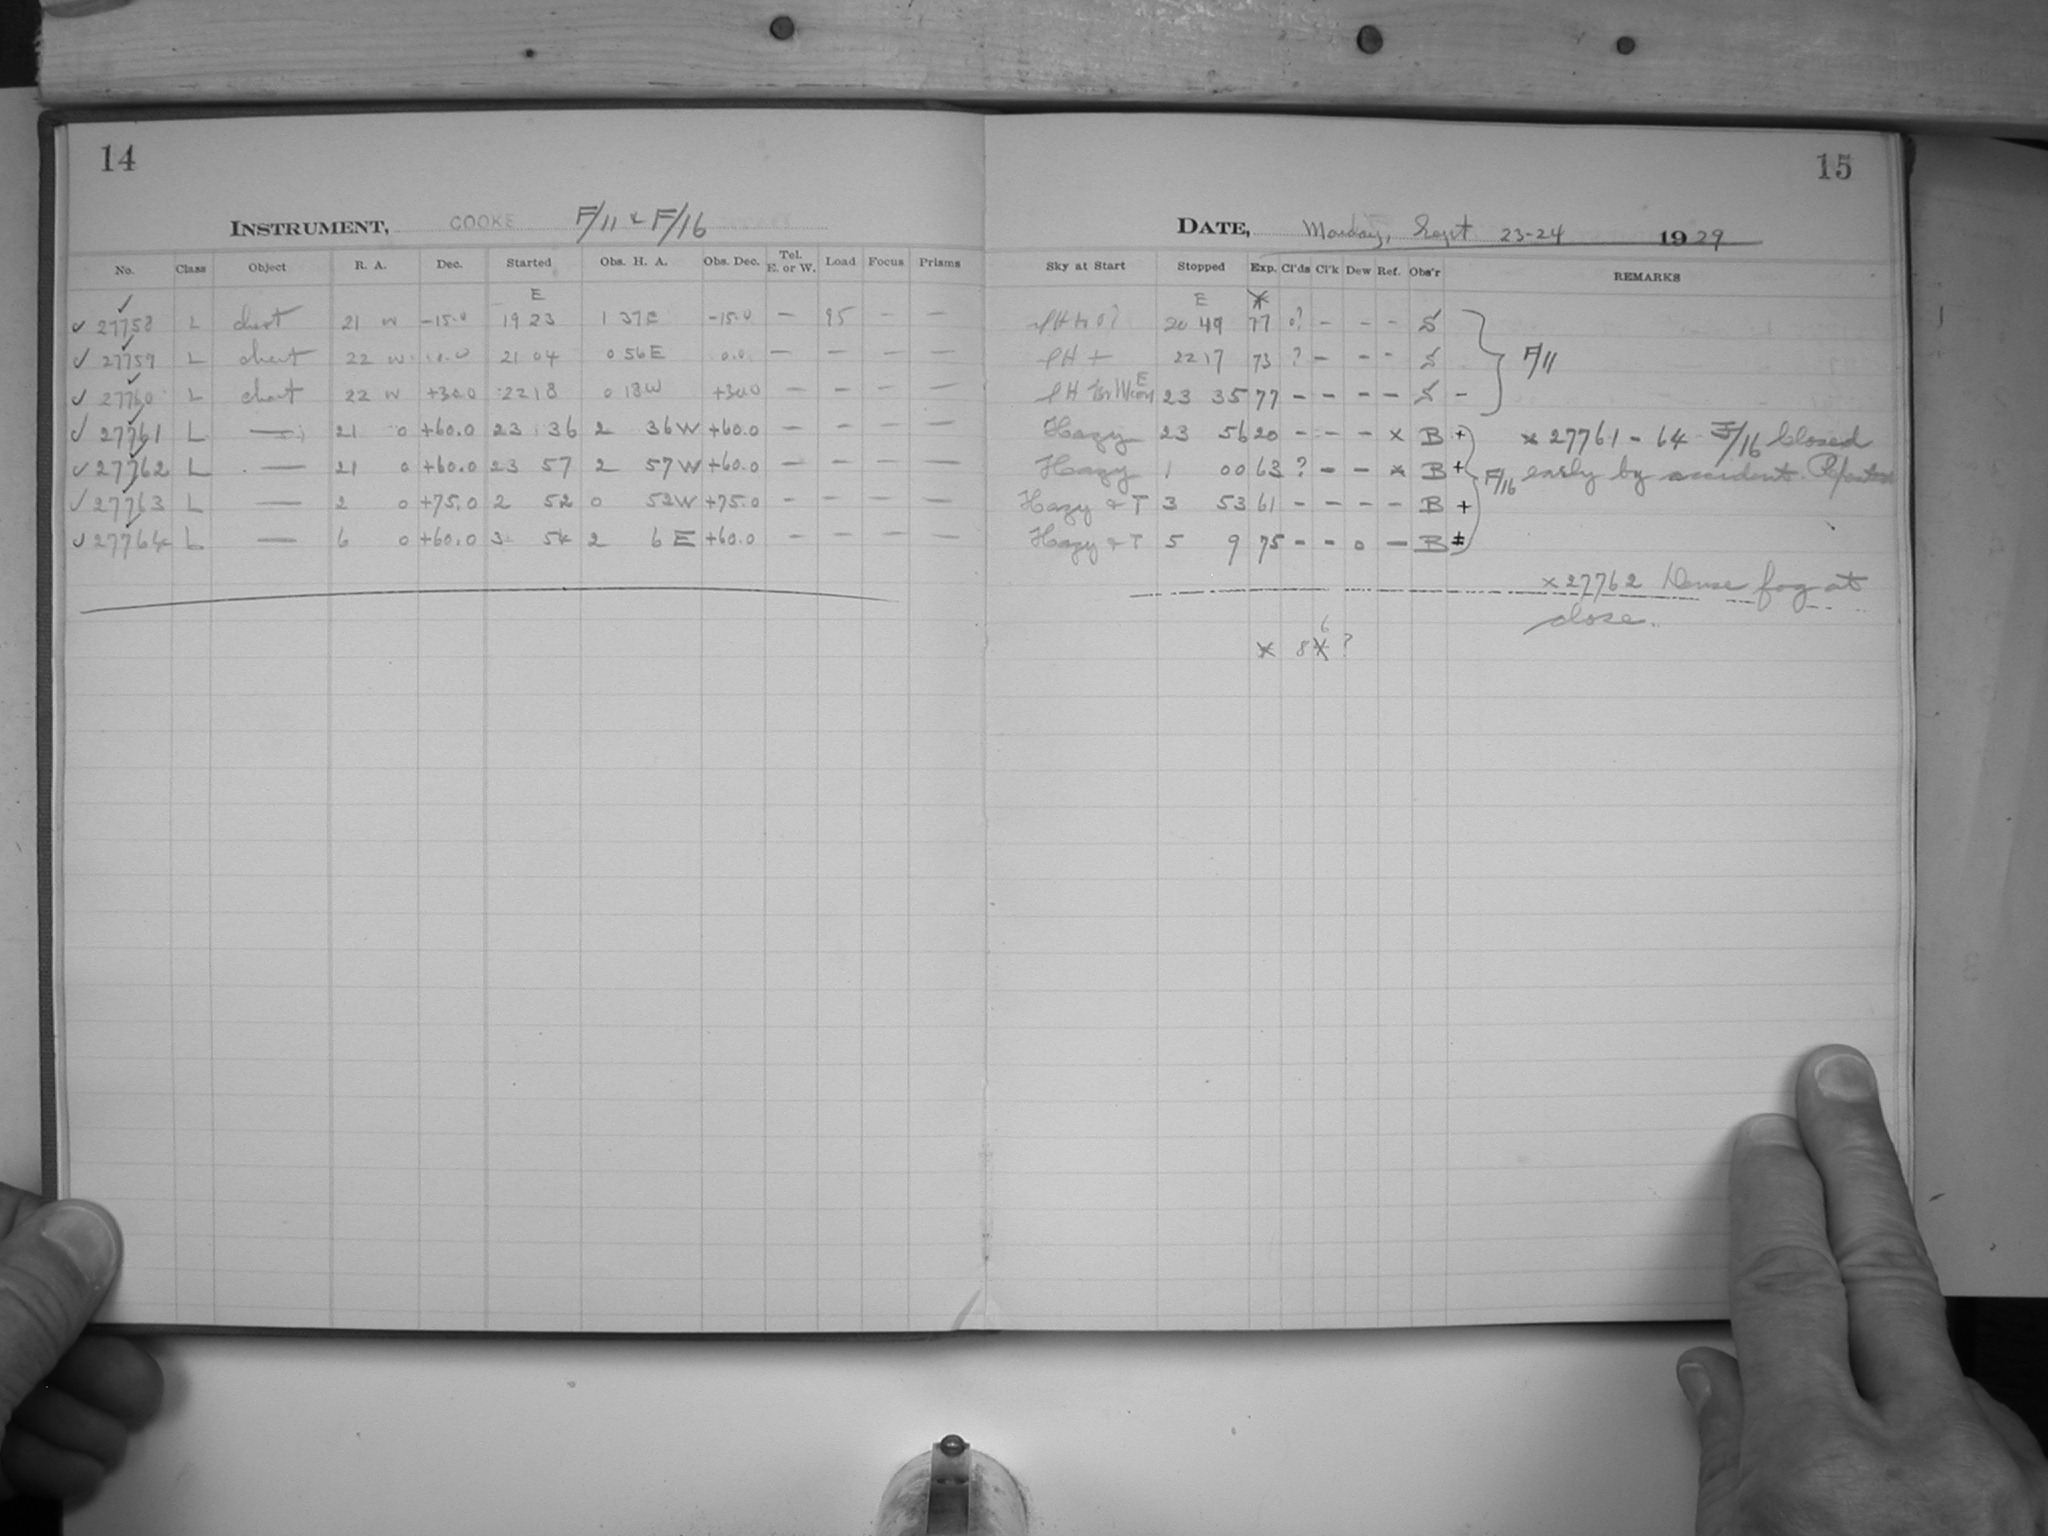 14
INSTRUMENT, COOKE F/11 & F/16
No. Class Object R. A. Dec. Started Obs. H. A. Obs. Dec. Tel. E. or W. Load Focus Prisms
E
✓ 27758 L chart 21 w -15.0 19 23 1 37E -15.0 — 95 — —
✓ 27759 L chart 22 w 21 04 0 56E 0.0 — — — —
✓ 27760 L chart 22 w +30.0 22 18 0 18W +30.0 — — — —
✓ 27761 L — 21 0 +60.0 23 36 2 36W +60.0 — — — —
✓ 27762 L — 21 0 +60.0 23 57 2 57W +60.0 — — — —
✓ 27763 L — 2 0 +75.0 2 52 0 52W +75.0 — — — —
✓ 27764 L — 6 0 +60.0 3 54 2 6 E +60.0 — — — —
15
DATE, Monday, Sept 23-24 1929
Sky at Start Stopped Exp. Cl'ds Cl'k Dew Ref. Obs'r REMARKS
E
20 49 77 0? - - - S
22 17 73 ? - - - S
E
23 35 77 - - - - S -
F/11
Hazy 23 56 20 - - - x B + x 27761 - 64 F/16 Closed
Hazy 1 00 63 ? - - x B + F/16 early by accident.
Hazy & T 3 53 61 - - - - B +
Hazy & T 5 9 75 - - 0 - B ±
x 27762 Dense fog at
close.
6
x 8 ?